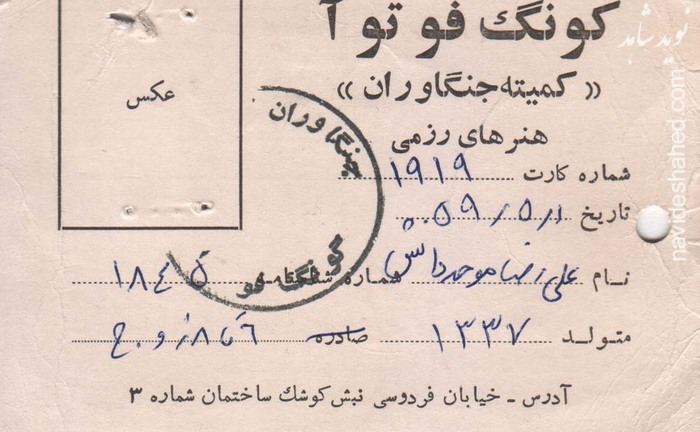 کونگ فو توآ
« کمیته جنگاوران »
هنرهای رزمی
عکس
شماره کارت ۱۹۱۹
تاریخ ۵۹/۵/۱
نام علیرضا موحد دانش شماره شناسنامه ۱۸۴۵
متولد ۱۳۳۷ صادره ۶ تا ۸ ز و. ج
آدرس - خیابان فردوسی نبش کوشک ساختمان شماره ۳
جنگاوران
کونگ فو
نوید شاهد
navideshahed.com